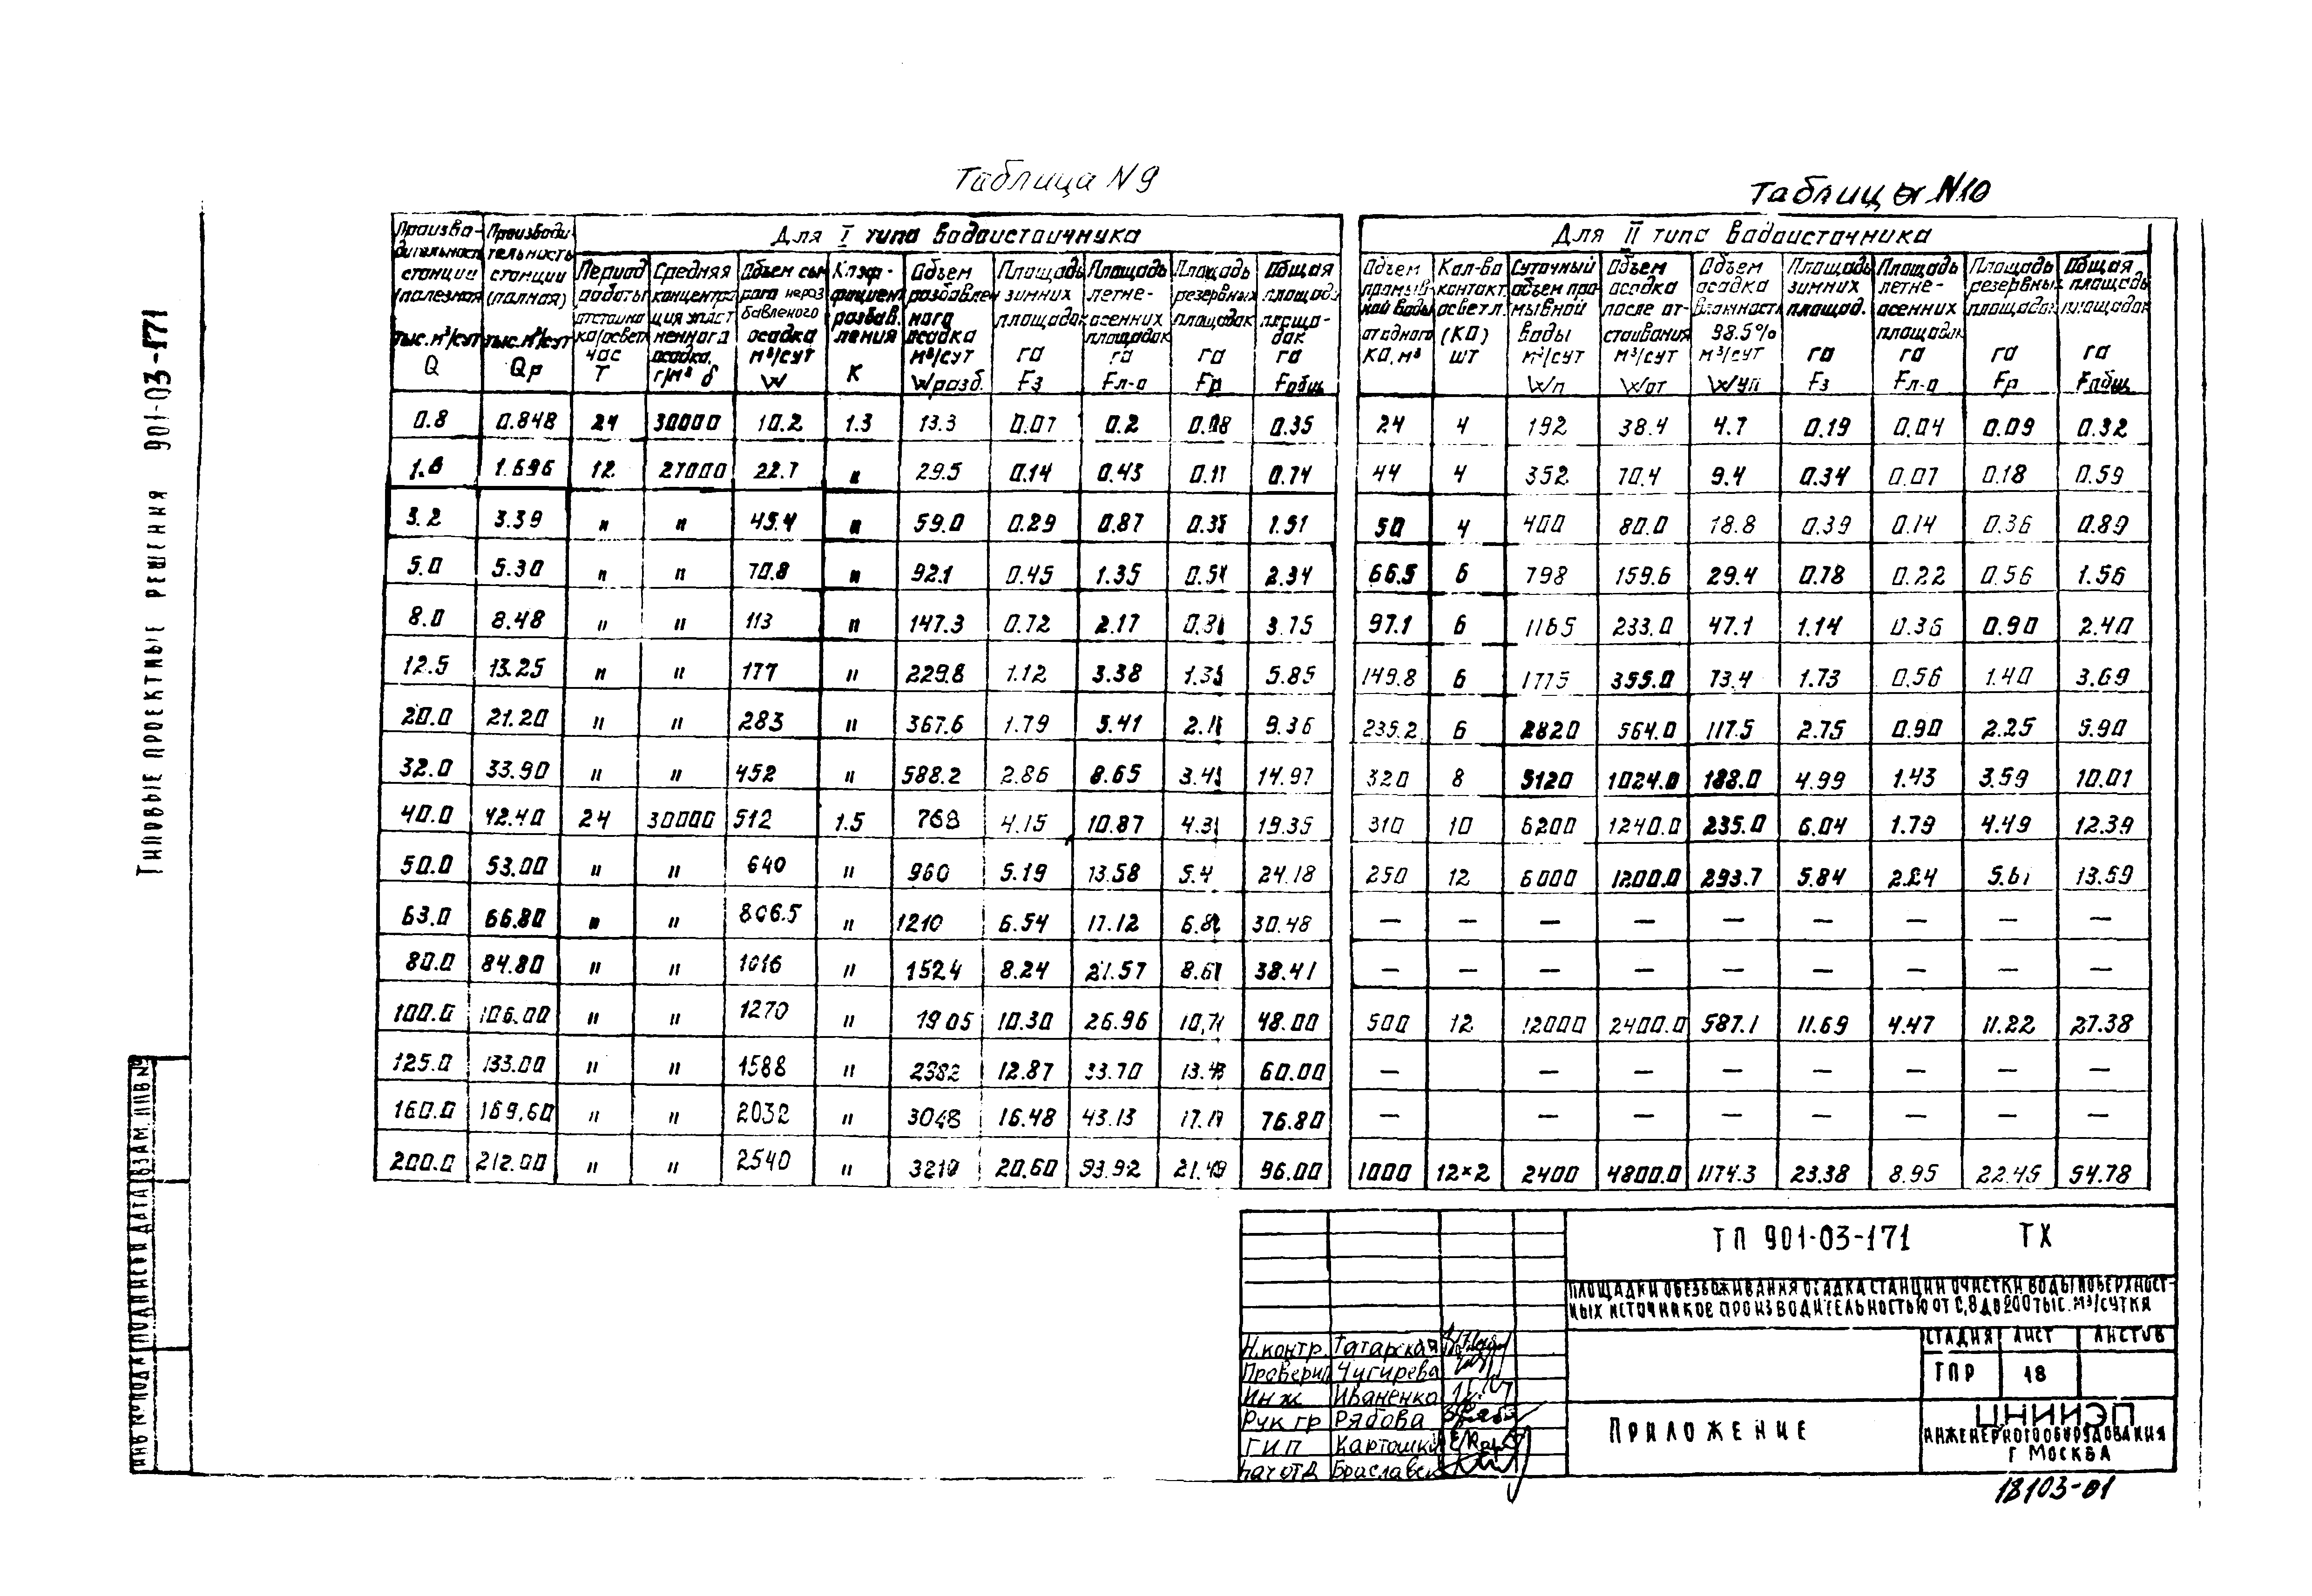 Типовые проектные решения 901-03-171
Таблица N9
Произво-дительность станции (полезная) тыс. м³/сут Q | Производи-тельность станции (полная) тыс. м³/сут Qр | Для I типа водоисточника
Период работы отстойника/осветл час T | Средняя концентрация уплотненного осадка, г/м³ δ | Объем сырого неразбавленого осадка м³/сут W | Коэф-фициент разбав.ления K | Объем разбавленного осадка м³/сут Wразб. | Площадь зимних площадок га Fз | Площадь летне-осенних площадок га Fл-о | Площадь резервных площадок га Fр | Общая площадь площа-док га Fобщ
0.8 | 0.848 | 24 | 30000 | 10.2 | 1.3 | 13.3 | 0.07 | 0.2 | 0.08 | 0.35
1.6 | 1.696 | 12 | 27000 | 22.7 | " | 29.5 | 0.14 | 0.43 | 0.17 | 0.74
3.2 | 3.39 | " | " | 45.4 | " | 59.0 | 0.29 | 0.87 | 0.35 | 1.51
5.0 | 5.30 | " | " | 70.8 | " | 92.1 | 0.45 | 1.35 | 0.54 | 2.34
8.0 | 8.48 | " | " | 113 | " | 147.3 | 0.72 | 2.17 | | 3.75
12.5 | 13.25 | " | " | 177 | " | 229.8 | 1.12 | 3.38 | 1.35 | 5.85
20.0 | 21.20 | " | " | 283 | " | 367.6 | 1.79 | 5.41 | | 9.36
32.0 | 33.90 | " | " | 452 | " | 588.2 | 2.86 | 8.65 | | 14.97
40.0 | 42.40 | 24 | 30000 | 512 | 1.5 | 768 | 4.15 | 10.87 | | 19.35
50.0 | 53.00 | " | " | 640 | " | 960 | 5.19 | 13.58 | 5.4 | 24.18
63.0 | 66.80 | " | " | 806.5 | " | 1210 | 6.54 | 17.12 | 6.82 | 30.48
80.0 | 84.80 | " | " | 1016 | " | 1524 | 8.24 | 21.57 | | 38.41
100.0 | 106.00 | " | " | 1270 | " | 1905 | 10.30 | 26.96 | | 48.00
125.0 | 133.00 | " | " | 1588 | " | 2382 | 12.87 | 33.70 | 13.43 | 60.00
160.0 | 169.60 | " | " | 2032 | " | 3048 | 16.48 | 43.13 | | 76.80
200.0 | 212.00 | " | " | 2540 | " | 3210 | 20.60 | 53.92 | | 96.00
Таблица N10
Для II типа водоисточника
Объем промыв-ной воды от одного КО, м³ | Кол-во контакт осветл. (КО) шт | Суточный объем про-мывной воды м³/сут Wп | Объем осадка после от-стаивания м³/сут Wот | Объем осадка влажность 98.5% м³/сут Wуп | Площадь зимних площад. га Fз | Площадь летне-осенних площадок га Fл-о | Площадь резервных площадок га Fр | Общая площадь площадок га Fобщ
24 | 4 | 192 | 38.4 | 4.7 | 0.19 | 0.04 | 0.09 | 0.32
44 | 4 | 352 | 70.4 | 9.4 | 0.34 | 0.07 | 0.18 | 0.59
50 | 4 | 400 | 80.0 | 18.8 | 0.39 | 0.14 | 0.36 | 0.89
66.5 | 6 | 798 | 159.6 | 29.4 | 0.78 | 0.22 | 0.56 | 1.56
97.1 | 6 | 1165 | 233.0 | 47.1 | 1.14 | 0.36 | 0.90 | 2.40
149.8 | 6 | 1775 | 355.0 | 73.4 | 1.73 | 0.56 | 1.40 | 3.69
235.2 | 6 | 2820 | 564.0 | 117.5 | 2.75 | 0.90 | 2.25 | 5.90
320 | 8 | 5120 | 1024.0 | 188.0 | 4.99 | 1.43 | 3.59 | 10.01
310 | 10 | 6200 | 1240.0 | 235.0 | 6.04 | 1.79 | 4.49 | 12.39
250 | 12 | 6000 | 1200.0 | 293.7 | 5.84 | 2.24 | 5.61 | 13.69
— | — | — | — | — | — | — | — | —
— | — | — | — | — | — | — | — | —
500 | 12 | 12000 | 2400.0 | 587.1 | 11.69 | 4.47 | 11.22 | 27.38
— | — | — | — | — | — | — | — | —
— | — | — | — | — | — | — | — | —
1000 | 12×2 | 2400 | 4800.0 | 1174.3 | 23.38 | 8.95 | 22.45 | 54.78
ТП 901-03-171 ТХ
Площадки обезвоживания осадка станции очистки воды поверхност-
ных источников производительностью от 0,8 до 200 тыс. м³/сутки
Н.контр. Татарская
Проверил Чугирева
Инж Иваненко
Рук гр Рябова
ГИП Картошки
Нач отд Браславск
Стадия Лист Листов
ТПР 18
Приложение
ЦНИИЭП
инженерного оборудования
г Москва
18103-01
Инв № подл Подпись и дата Взам. инв №